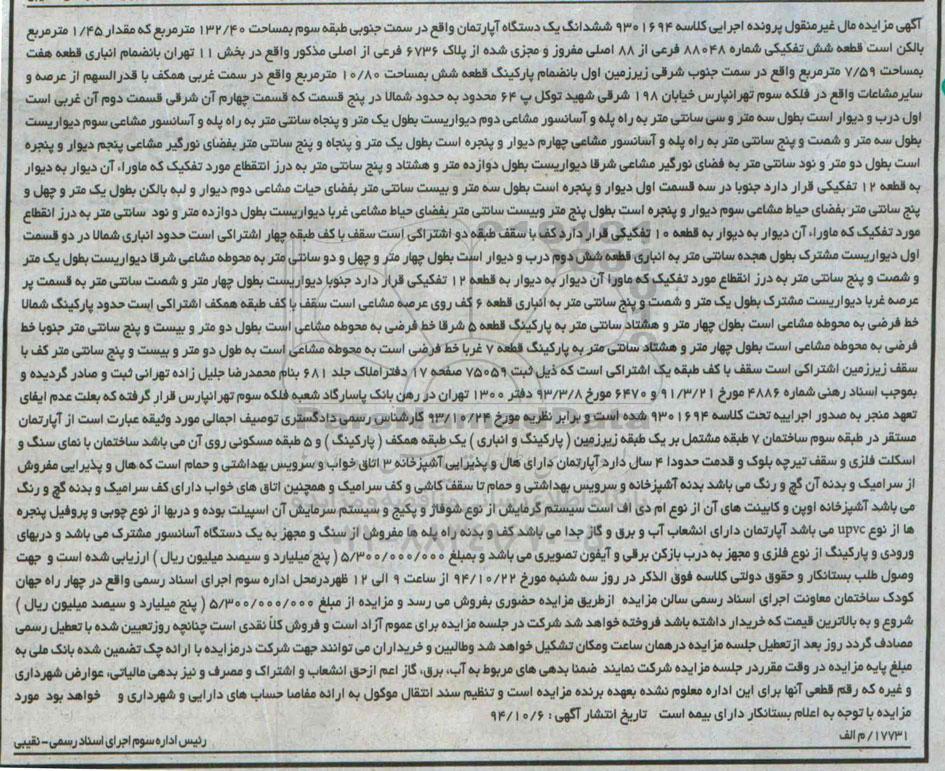 آگهی مزایده مال غیرمنقول پرونده اجرایی کلاسه ۹۳۰۱۶۹۴ ششدانگ یک دستگاه آپارتمان واقع در سمت جنوبی طبقه سوم بمساحت ۱۳۲/۴۰ مترمربع که مقدار ۱/۴۵ مترمربع
بالکن است قطعه شش تفکیکی شماره ۸۸۰۴۸ فرعی از ۸۸ اصلی مفروز و مجزی شده از پلاک ۶۷۳۶ فرعی از اصلی مذکور واقع در بخش ۱۱ تهران بانضمام انباری قطعه هفت
بمساحت ۷/۵۹ مترمربع واقع در سمت جنوب شرقی زیرزمین اول بانضمام پارکینگ قطعه شش بمساحت ۱۰/۸۰ مترمربع واقع در سمت غربی همکف با قدرالسهم از عرصه و
سایرمشاعات واقع در فلکه سوم تهرانپارس خیابان ۱۹۸ شرقی شهید توکل پ ۶۴ محدود به حدود شمالا در پنج قسمت که قسمت چهارم آن شرقی قسمت دوم آن غربی است
اول درب و دیوار است بطول سه متر و سی سانتی متر به راه پله و آسانسور مشاعی دوم دیواریست بطول یک متر و پنجاه سانتی متر به راه پله و آسانسور مشاعی سوم دیواریست
بطول سه متر و شصت و پنج سانتی متر به راه پله و آسانسور مشاعی چهارم دیوار و پنجره است بطول یک متر و پنجاه و پنج سانتی متر بفضای نورگیر مشاعی پنجم دیوار و پنجره
است بطول دو متر و نود سانتی متر به فضای نورگیر مشاعی شرقا دیواریست بطول دوازده متر و هشتاد و پنج سانتی متر به درز انتقطاع مورد تفکیک که ماوراء آن دیوار به دیوار
به قطعه ۱۲ تفکیکی قرار دارد جنوبا در سه قسمت اول دیوار و پنجره است بطول سه متر و بیست سانتی متر بفضای حیات مشاعی دوم دیوار و لبه بالکن بطول یک متر و چهل و
پنج سانتی متر بفضای حیاط مشاعی سوم دیوار و پنجره است بطول پنج متر وبیست سانتی متر بفضای حیاط مشاعی غربا دیواریست بطول دوازده متر و نود سانتی متر به درز انقطاع
مورد تفکیک که ماوراء آن دیوار به دیوار به قطعه ۱۰ تفکیکی قرار دارد کف با سقف طبقه دو اشتراکی است سقف با کف طبقه چهار اشتراکی است حدود انباری شمالا در دو قسمت
اول دیواریست مشترک بطول هجده سانتی متر به انباری قطعه شش دوم درب و دیوار است بطول چهار متر و چهل و دو سانتی متر به محوطه مشاعی شرقا دیواریست بطول یک متر
و شصت و پنج سانتی متر به درز انقطاع مورد تفکیک که ماورا آن دیوار به دیوار به قطعه ۱۲ تفکیکی قرار دارد جنوبا دیواریست بطول چهار متر و شصت سانتی متر به قسمت پر
عرصه غربا دیواریست مشترک بطول یک متر و شصت و پنج سانتی متر به انباری قطعه ۶ کف روی عرصه مشاعی است سقف با کف طبقه همکف اشتراکی است حدود پارکینگ شمالا
خط فرضی به محوطه مشاعی است بطول چهار متر و هشتاد سانتی متر به پارکینگ قطعه ۵ شرقا خط فرضی به محوطه مشاعی است بطول دو متر و بیست و پنج سانتی متر جنوبا خط
فرضی به محوطه مشاعی است بطول چهار متر و هشتاد سانتی متر به پارکینگ قطعه ۷ غربا خط فرضی است به محوطه مشاعی است به طول دو متر و بیست و پنج سانتی متر کف با
سقف زیرزمین اشتراکی است سقف با کف طبقه یک اشتراکی است که ذیل ثبت ۷۵۰۵۹ صفحه ۱۷ دفتراملاک جلد ۶۸۱ بنام محمدرضا جلیل زاده تهرانی ثبت و صادر گردیده و
بموجب اسناد رهنی شماره ۴۸۸۶ مورخ ۹۱/۳/۲۱ و ۶۴۷۰ مورخ ۹۳/۳/۸ دفتر ۱۳۰۰ تهران در رهن بانک پاسارگاد شعبه فلکه سوم تهرانپارس قرار گرفته که بعلت عدم ایفای
تعهد منجر به صدور اجراییه تحت کلاسه ۹۳۰۱۶۹۴ شده است و برابر نظریه مورخ ۹۳/۱۰/۲۴ کارشناس رسمی دادگستری توصیف اجمالی مورد وثیقه عبارت است از آپارتمان
مستقر در طبقه سوم ساختمان ۷ طبقه مشتمل بر یک طبقه زیرزمین ( پارکینگ و انباری ) یک طبقه همکف ( پارکینگ ) و ۵ طبقه مسکونی روی آن می باشد ساختمان با نمای سنگ و
اسکلت فلزی و سقف تیرچه بلوک و قدمت حدودا ۴ سال دارد آپارتمان دارای هال و پذیرایی آشپزخانه ۳ اتاق خواب و سرویس بهداشتی و حمام است که هال و پذیرایی مفروش
از سرامیک و بدنه آن گچ و رنگ می باشد بدنه آشپزخانه و سرویس بهداشتی و حمام تا سقف کاشی و کف سرامیک و همچنین اتاق های خواب دارای کف سرامیک و بدنه گچ و رنگ
می باشد آشپزخانه اوپن و کابینت های آن از نوع ام دی اف است سیستم گرمایش از نوع شوفاژ و پکیج و سیستم سرمایش آن اسپیلت بوده و دربها از نوع چوبی و پروفیل پنجره
ها از نوع upvc می باشد آپارتمان دارای انشعاب آب و برق و گاز جدا می باشد کف و بدنه راه پله ها مفروش از سنگ و مجهز به یک دستگاه آسانسور مشترک می باشد و دربهای
ورودی و پارکینگ از نوع فلزی و مجهز به درب بازکن برقی و آیفون تصویری می باشد و بمبلغ ۵/۳۰۰/۰۰۰/۰۰۰ ( پنج میلیارد و سیصد میلیون ریال ) ارزیابی شده است و جهت
وصول طلب بستانکار و حقوق دولتی کلاسه فوق الذکر در روز سه شنبه مورخ ۹۴/۱۰/۲۲ از ساعت ۹ الی ۱۲ ظهردرمحل اداره سوم اجرای اسناد رسمی واقع در چهار راه جهان
کودک ساختمان معاونت اجرای اسناد رسمی سالن مزایده ازطریق مزایده حضوری بفروش می رسد و مزایده از مبلغ ۵/۳۰۰/۰۰۰/۰۰۰ ( پنج میلیارد و سیصد میلیون ریال )
شروع و به بالاترین قیمت که خریدار داشته باشد فروخته خواهد شد شرکت در جلسه مزایده برای عموم آزاد است و فروش کلا نقدی است چنانچه روزتعیین شده با تعطیل رسمی
مصادف گردد روز بعد ازتعطیل جلسه مزایده درهمان ساعت ومکان تشکیل خواهد شد وطالبین و خریداران می توانند جهت شرکت درمزایده با ارائه چک تضمین شده بانک ملی به
مبلغ پایه مزایده در وقت مقرردر جلسه مزایده شرکت نمایند ضمنا بدهی های مربوط به آب، برق، گاز اعم ازحق انشعاب و اشتراک و مصرف و نیز بدهی مالیاتی، عوارض شهرداری
و غیره که رقم قطعی آنها برای این اداره معلوم نشده بعهده برنده مزایده است و تنظیم سند انتقال موکول به ارائه مفاصا حساب های دارایی و شهرداری و خواهد بود مورد
مزایده با توجه به اعلام بستانکار دارای بیمه است تاریخ انتشار آگهی : ۹۴/۱۰/۶
۱۷۷۳۱/ م الف
رئیس اداره سوم اجرای اسناد رسمی – نقیبی